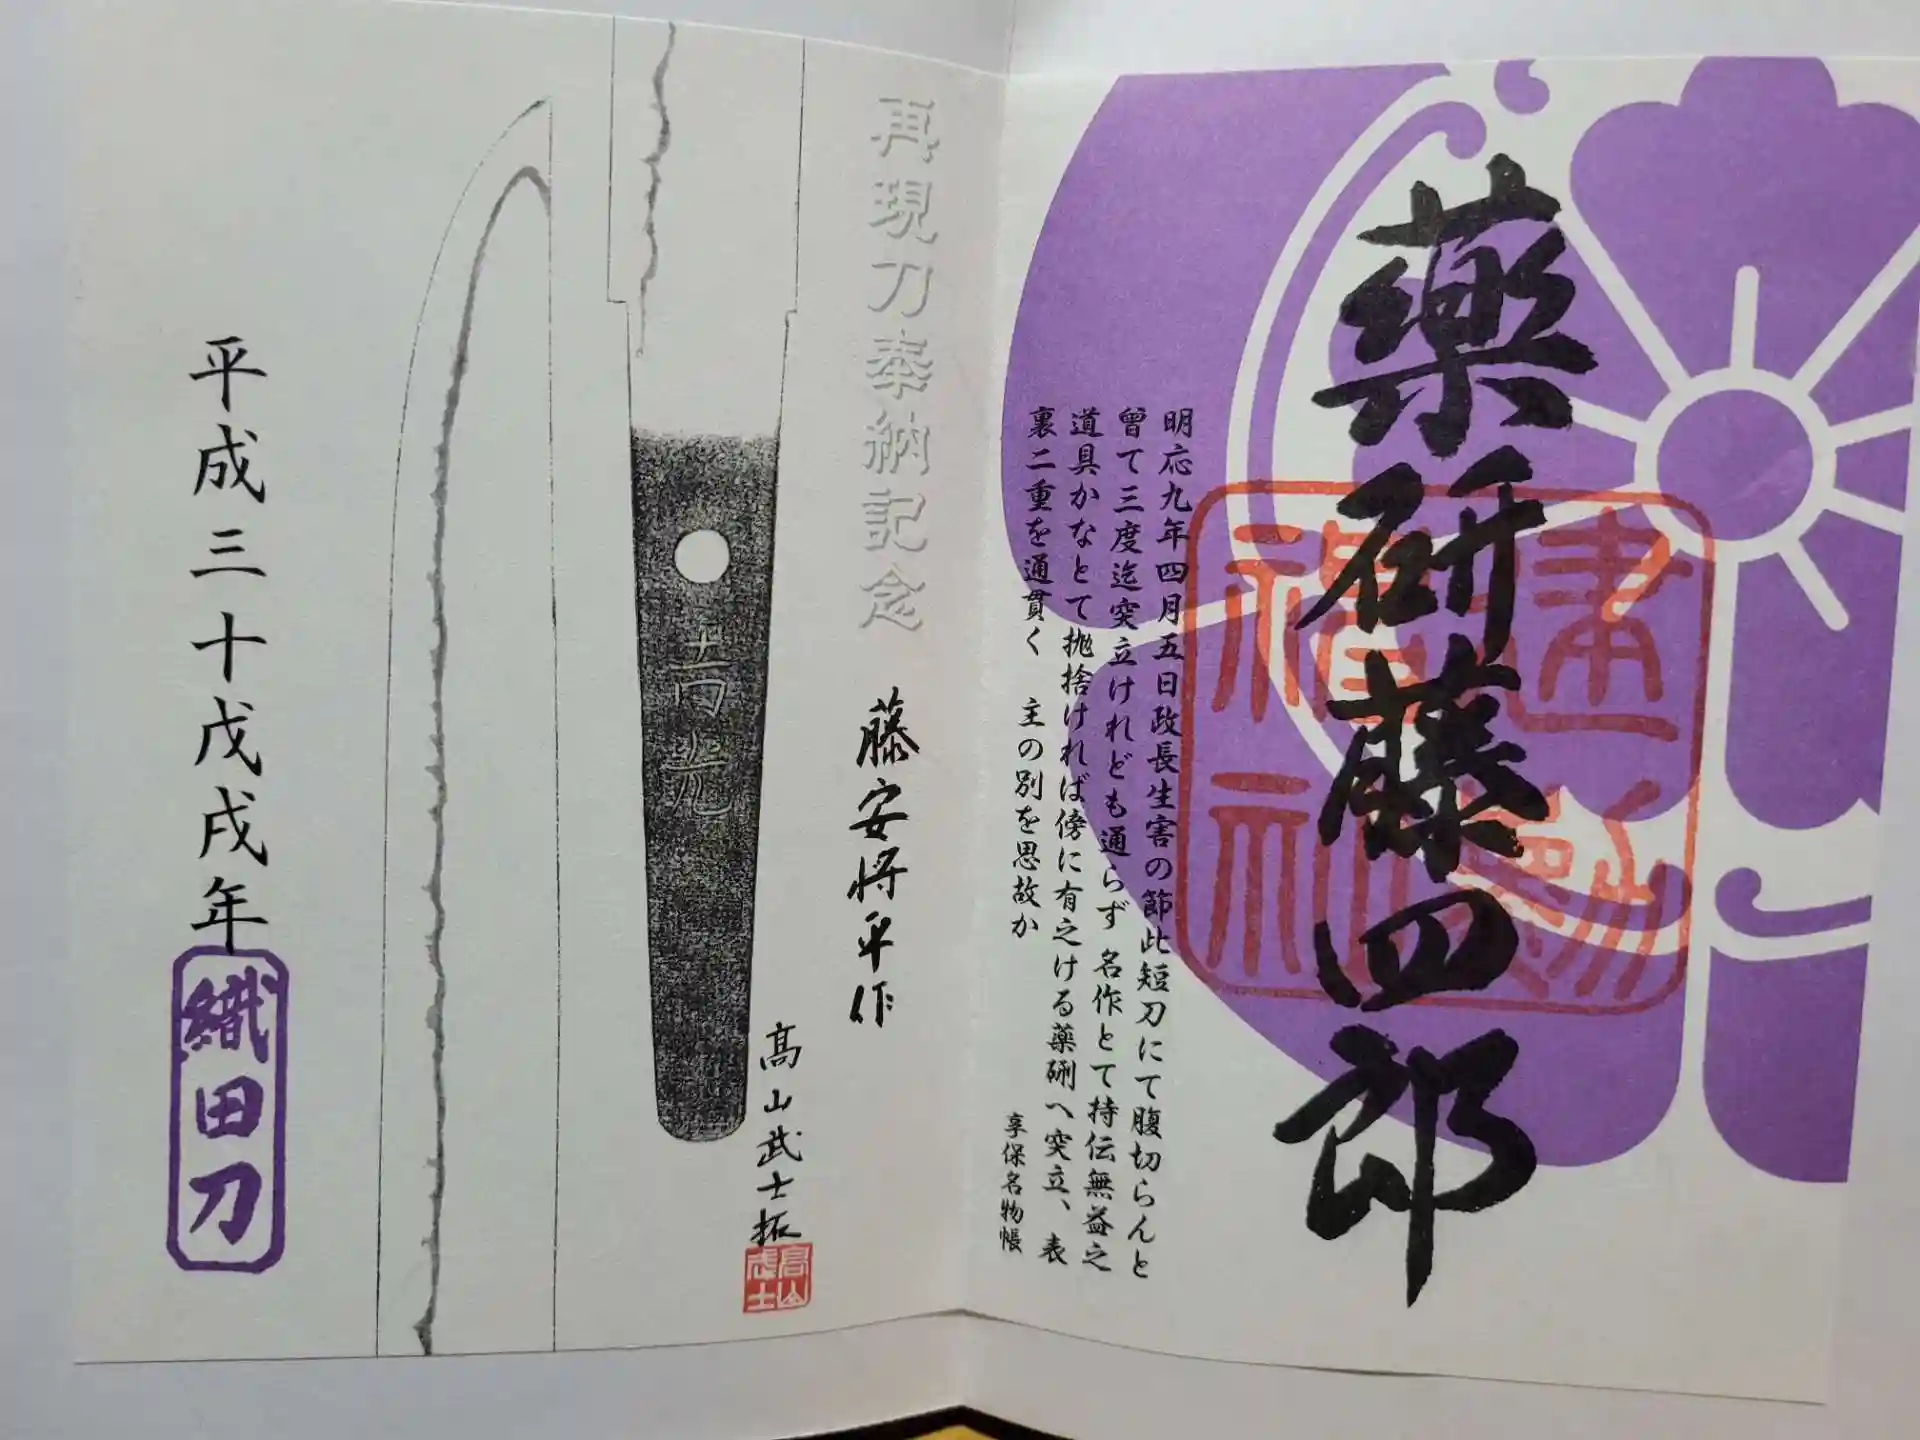 薬研藤四郎
建勲
福神
明応九年四月五日政長生害の節此短刀にて腹切らんと
曾て三度迄突立けれども通らず 名作とて持伝無益之
道具かなとて抛捨ければ傍に有之ける薬硎へ突立、表
裏二重を通貫く 主の別を思故か
享保名物帳
再現刀奉納記念
藤安将平作
髙山武士拓
高山武士
吉光
平成三十戊戌年
織田刀